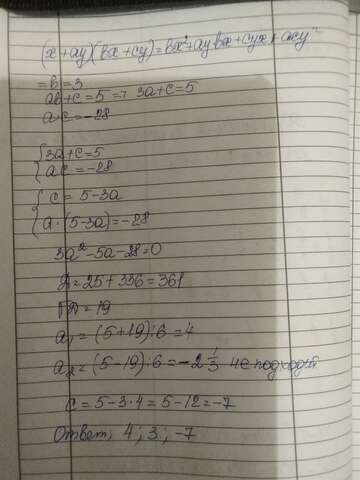 (x+ay)(bx+cy)=bx²+aybx+cyx+acy²
=b=3
ab+c=5=> 3a+c=5
a·c=-28
{3a+c=5
{ac=-28
{c=5-3a
{a·(5-3a)=-28
3a²-5a-28=0
Д=25+336=361
√Д=19
a₁=(5+19):6=4
a₂=(5-19):6=-2 1/3 не подходит
c=5-3·4=5-12=-7
Ответ; 4; 3; -7